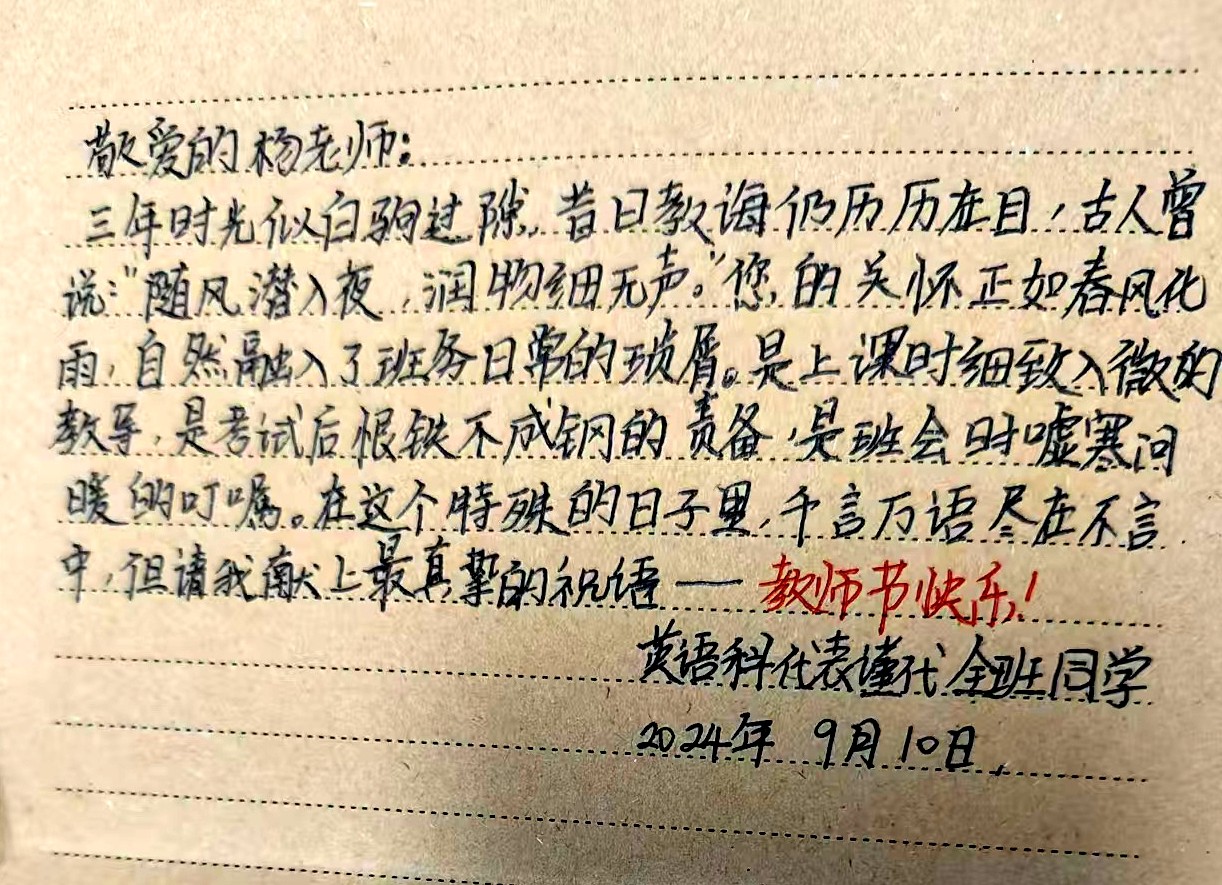 敬爱的杨老师:
三年时光似白驹过隙,昔日教诲仍历历在目,古人曾
说:“随风潜入夜,润物细无声。”您的关怀正如春风化
雨,自然融入了班务日常的琐屑。是上课时细致入微的
教导,是考试后恨铁不成钢的责备,是班会时嘘寒问
暖的叮嘱。在这个特殊的日子里,千言万语尽在不言
中,但请我献上最真挚的祝语——教师节快乐!
英语科代表谨代全班同学
2024年 9月10日,